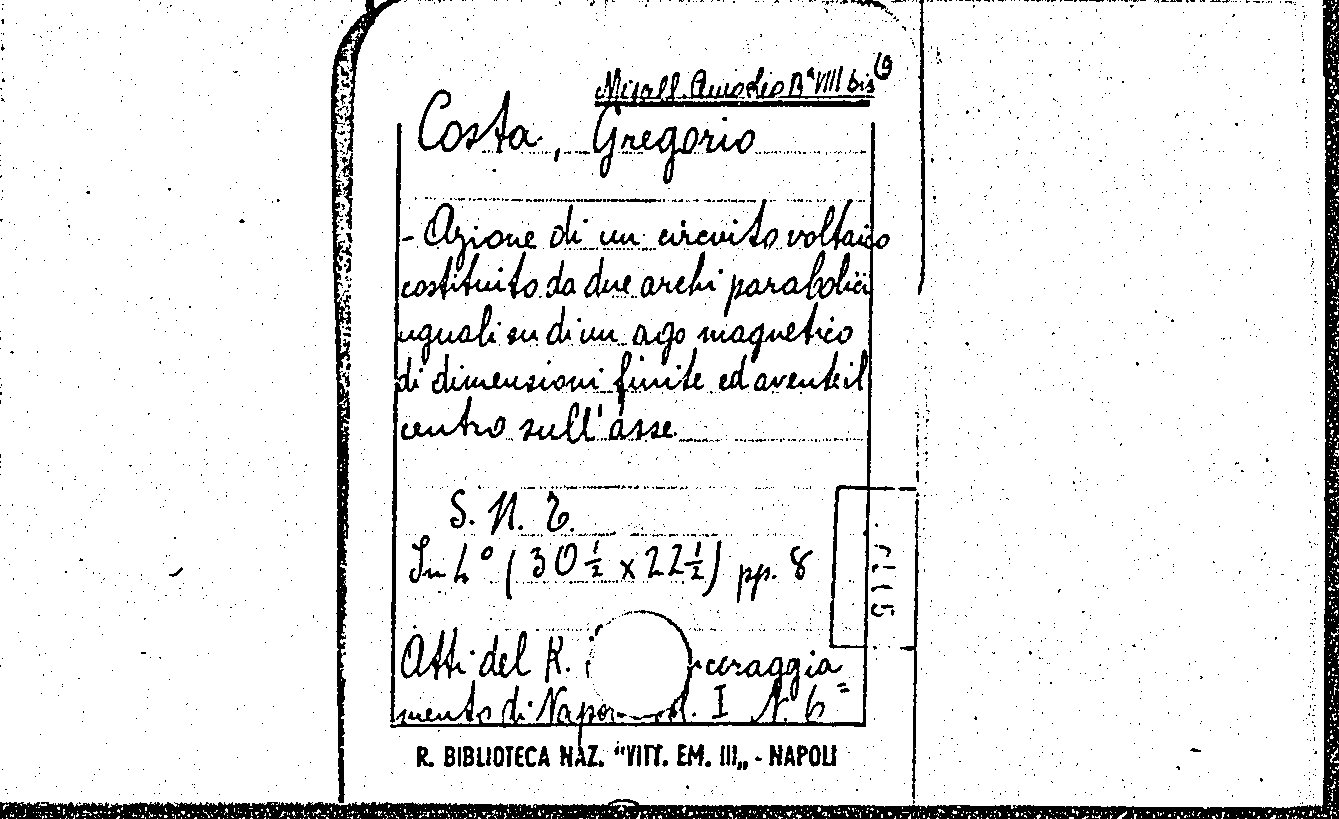 Miscell. Amodeo Bª VIII bis (9
Costa, Gregorio
- Azione di un circuito voltaico
costituito da due archi parabolici
uguali su di un ago magnetico
di dimensioni finite ed avente il
centro sull'asse.
S. N. T.
In 4° (30 ½ x 22 ½) pp. 8
Atti del R. coraggia
mento di Napo I N. 6 =
R. BIBLIOTECA NAZ. "VITT. EM. III„ - NAPOLI